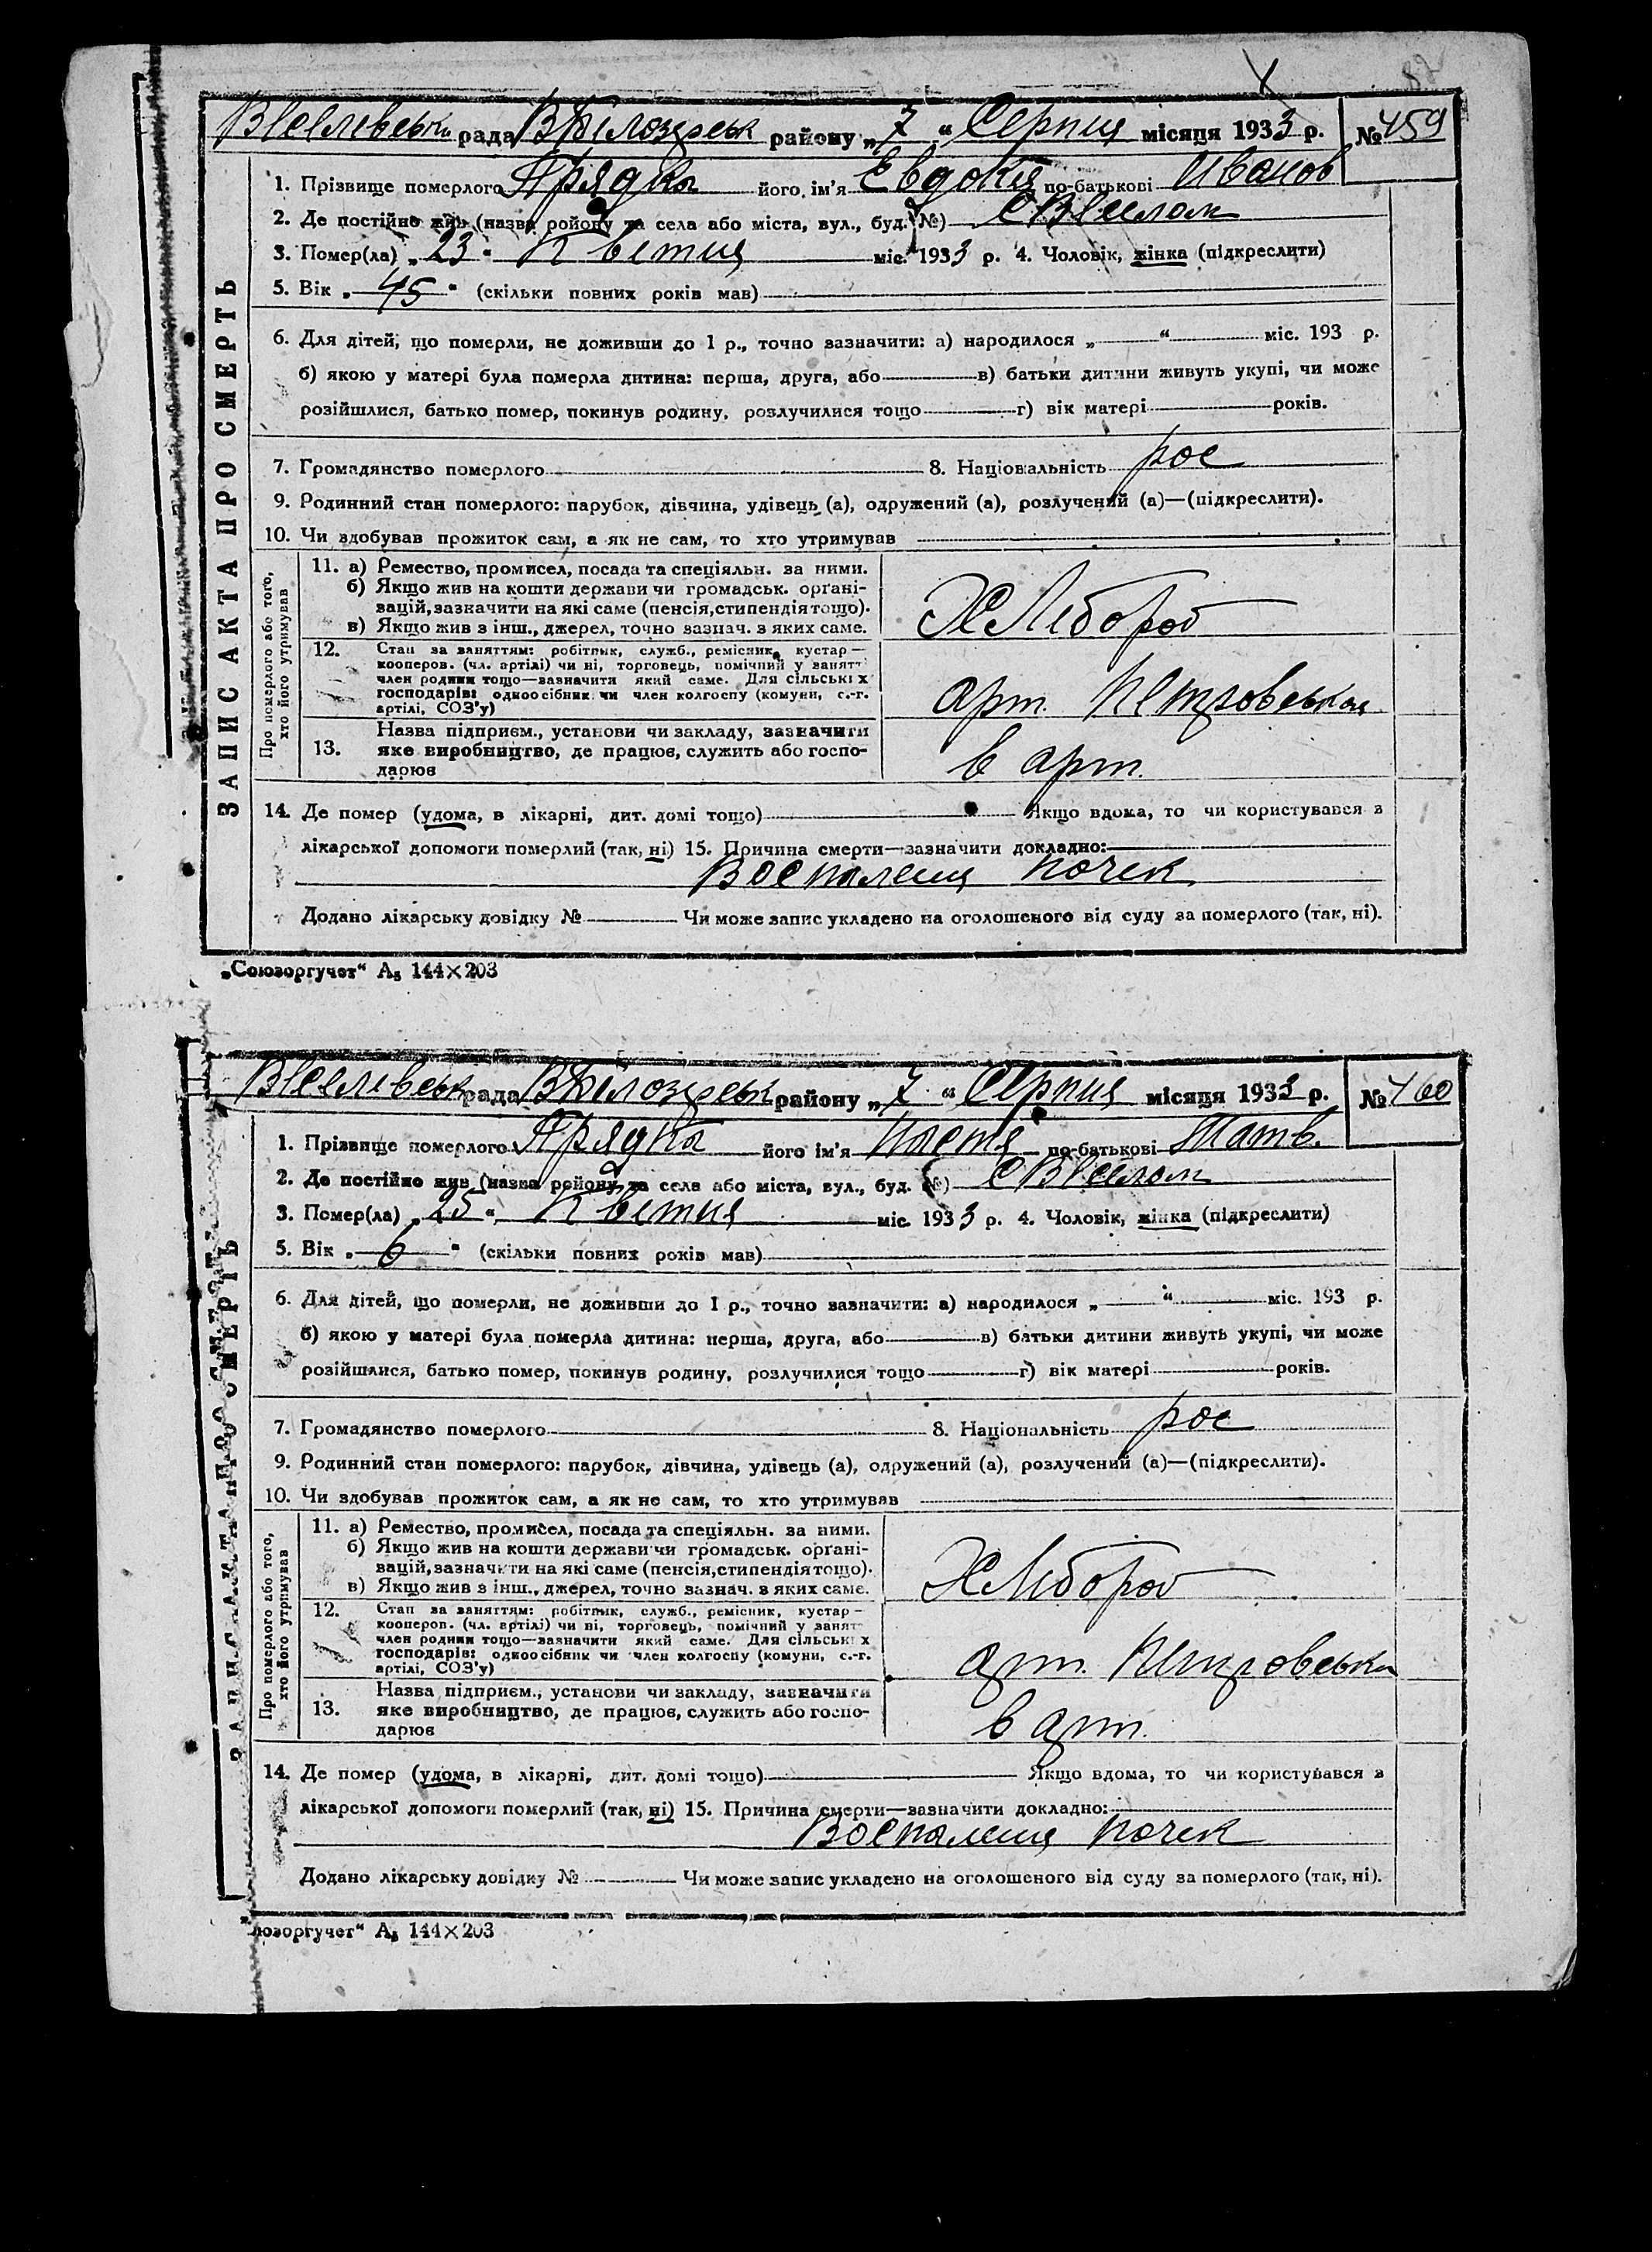 рада району „ 7 “ Серпня місяця 1933 р. № 459
1. Прізвище померлого Прядка його ім'я Евдокія по-батькові Иванов
2. Де постійно жив (назва району та села або міста, вул., буд. №)
3. Помер(ла) „ 23 “ Квітня міс. 1933 р. 4. Чоловік, жінка (підкреслити)
5. Вік „ 45 “ (скільки повних років мав)
6. Для дітей, що померли, не доживши до 1 р., точно зазначити: а) народилося „ “ міс. 193 р.
б) якою у матері була померла дитина: перша, друга, або в) батьки дитини живуть укупі, чи може
розійшлися, батько помер, покинув родину, розлучилися тощо г) вік матері років.
7. Громадянство померлого 8. Національність рос
9. Родинний стан померлого: парубок, дівчина, удівець (а), одружений (а), розлучений (а)—(підкреслити).
10. Чи здобував прожиток сам, а як не сам, то хто утримував
ЗАПИС АКТА ПРО СМЕРТЬ
Про померлого або того,
хто його утримував
11. а) Ремество, промисел, посада та спеціяльн. за ними.
б) Якщо жив на кошти держави чи громадськ. орґані-
зацій, зазначити на які саме (пенсія, стипендія тощо).
в) Якщо жив з інш., джерел, точно зазнач. з яких саме.
Хлібороб
12. Стан за заняттям: робітник, служб., ремісник, кустар—
кооперов. (чл. артілі) чи ні, торговець, помічний у занятт
член родини тощо—зазначити який саме. Для сільських
господарів: одноосібник чи член колгоспу (комуни, с.-г.
артілі, СОЗ'у)
арт. Петровського
13. Назва підприєм., установи чи закладу, зазначити
яке виробництво, де працює, служить або госпо-
дарює
в арт.
14. Де помер (удома, в лікарні, дит. домі тощо) Якщо вдома, то чи користувався з
лікарської допомоги померлий (так, ні) 15. Причина смерти—зазначити докладно:
Воспаления почек
Додано лікарську довідку № Чи може запис укладено на оголошеного від суду за померлого (так, ні).
„Союзоргучет“ А₅ 144×203
рада району „ 7 “ Серпня місяця 1933 р. № 460
1. Прізвище померлого Прядка його ім'я Настя по-батькові Матв.
2. Де постійно жив (назва району та села або міста, вул., буд. №)
3. Помер(ла) „ 25 “ Квітня міс. 1933 р. 4. Чоловік, жінка (підкреслити)
5. Вік „ 6 “ (скільки повних років мав)
6. Для дітей, що померли, не доживши до 1 р., точно зазначити: а) народилося „ “ міс. 193 р.
б) якою у матері була померла дитина: перша, друга, або в) батьки дитини живуть укупі, чи може
розійшлися, батько помер, покинув родину, розлучилися тощо г) вік матері років.
7. Громадянство померлого 8. Національність рос
9. Родинний стан померлого: парубок, дівчина, удівець (а), одружений (а), розлучений (а)—(підкреслити).
10. Чи здобував прожиток сам, а як не сам, то хто утримував
ЗАПИС АКТА ПРО СМЕРТЬ
Про померлого або того,
хто його утримував
11. а) Ремество, промисел, посада та спеціяльн. за ними.
б) Якщо жив на кошти держави чи громадськ. орґані-
зацій, зазначити на які саме (пенсія, стипендія тощо).
в) Якщо жив з інш., джерел, точно зазнач. з яких саме.
Хлібороб
12. Стан за заняттям: робітник, служб., ремісник, кустар—
кооперов. (чл. артілі) чи ні, торговець, помічний у занят
член родини тощо—зазначити який саме. Для сільських
господарів: одноосібник чи член колгоспу (комуни, с.-г.
артілі, СОЗ'у)
арт. Петровська
13. Назва підприєм., установи чи закладу, зазначити
яке виробництво, де працює, служить або госпо-
дарює
в арт.
14. Де помер (удома, в лікарні, дит. домі тощо) Якщо вдома, то чи користувався з
лікарської допомоги померлий (так, ні) 15. Причина смерти—зазначити докладно:
Воспаления почек
Додано лікарську довідку № Чи може запис укладено на оголошеного від суду за померлого (так, ні).
юзоргучет“ А₅ 144×203